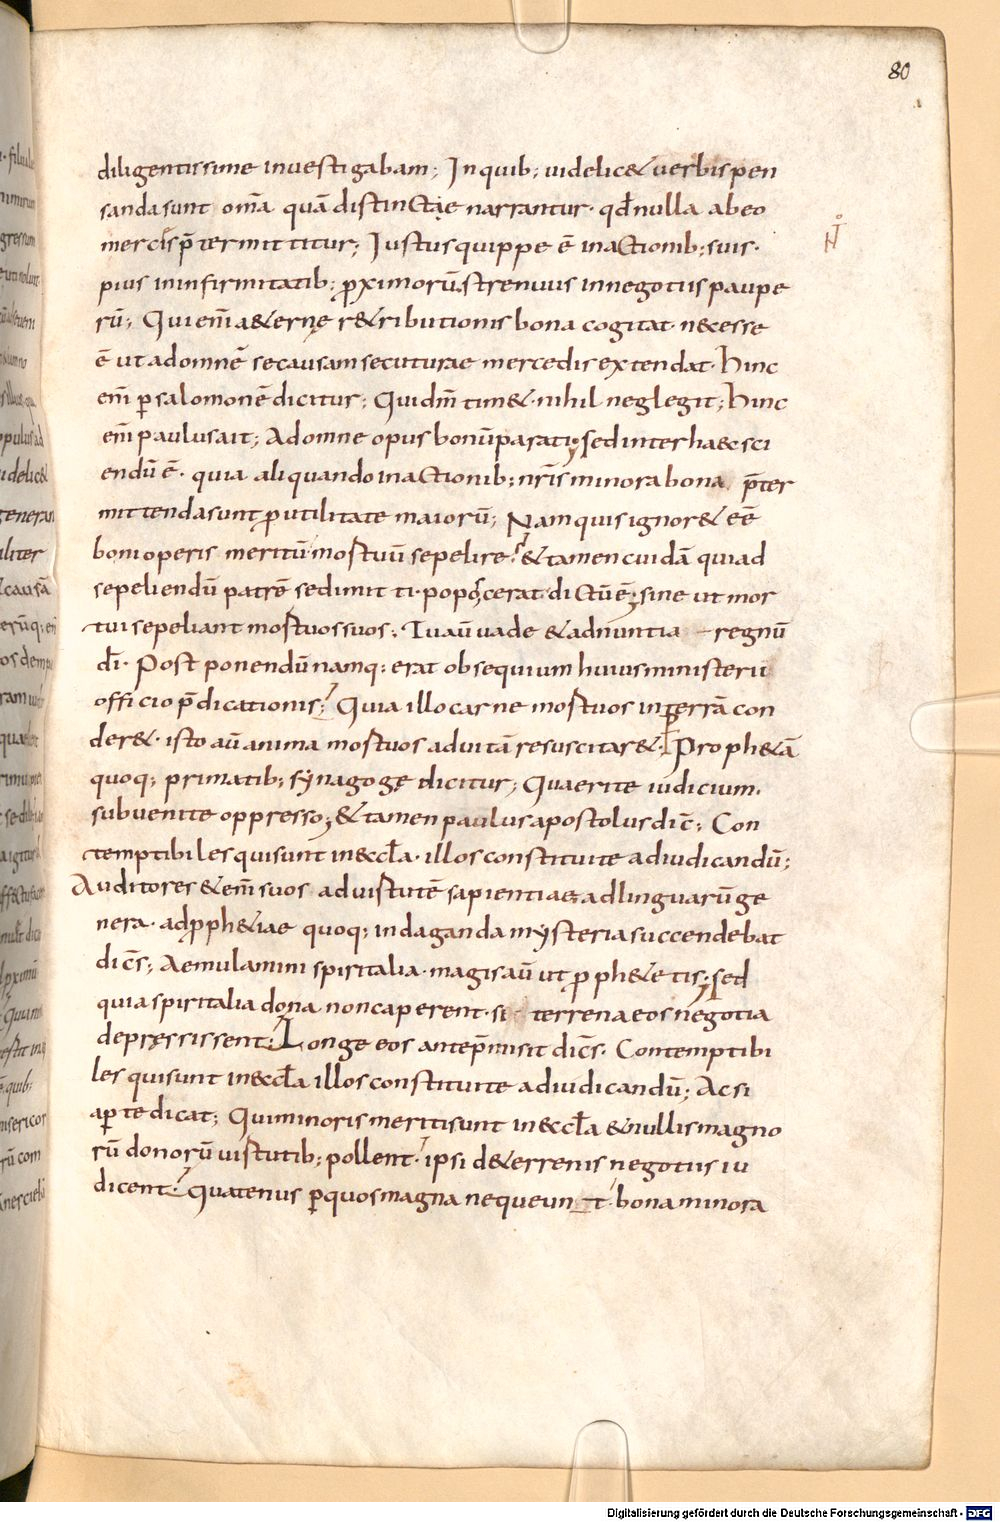 80
diligentissime inuestigabam; In quib; uidelic& uerbis pen
sanda sunt om̄a quā distinctae narrantur. qđ nulla ab eo
mercis p̄termittitur; Iustus quippe ē in actionib; suis.
pius in infirmitatib; ꝓximorū. strenuus in negotiis paupe
rū; Qui enī a&ernę r&ributionis bona cogitat. necesse
ē ut ad omnē se causam secuturae mercedis extendat. hinc
enī ꝑ salomonē dicitur; Qui dm̄ tim&. nihil neglegit; hinc
enī paulus ait; Ad omne opus bonū parati; sed inter haec sci
endū ē. quia aliquando in actionib; nr̄is minora bona p̄ter
mittenda sunt ꝓ utilitate maiorū; Nam quis ignor& eē
boni operis meritū mortuū sepelire? & tamen cuidā qui ad
sepeliendū patrē se dimitti. poposcerat dictū ē; sine ut mor
tui sepeliant mortuos suos; Tu aū uade & adnuntia regnū
dī. Postponendū namq; erat obsequium huius ministerii
officio p̄dicationis; Quia illo carne mortuos in terrā con
der&. isto aū anima mortuos ad uitā resuscitar&. Proph&ā
quoq; primatib; synagogę dicitur; Quaerite iudicium.
subuenite oppresso; & tamen paulus apostolus dic̄; Con
temptibiles qui sunt in eccl̄a. illos constituite ad iudicandū;
Auditores &enī suos ad uirtutē sapientiae. ad linguarū ge
nera. ad ꝓph&iae quoq; indaganda mysteria succendebat
dic̄s; Aemulamini spiritalia. magis aū ut ꝓph&etis; sed
quia spiritalia dona non caperent. si terrena eos negotia
depręssissent; Longe eos antep̄misit dic̄s. Contemptibi
les qui sunt in eccl̄a illos constituite ad iudicandū; Ac si
aꝑte dicat; Qui minoris meriti sunt in eccl̄a & nullis magno
rū donorū uirtutib; pollent. ipsi de terrenis negotiis iu
dicent. Quatenus ꝑ quos magna nequeunt. bona minora
Digitalisierung gefördert durch die Deutsche Forschungsgemeinschaft - DFG